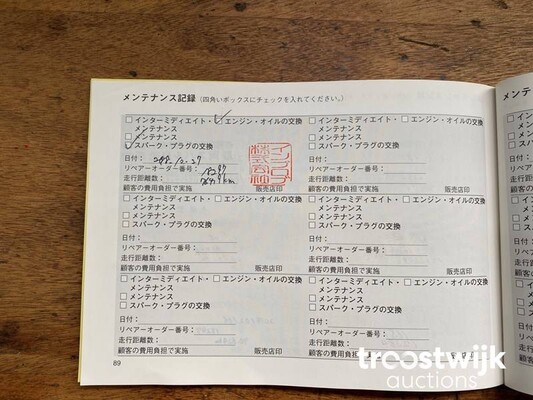 メンテナンス記録 (四角いボックスにチェックを入れてください。)
□ インターミディエイト・ □ エンジン・オイルの交換
メンテナンス
□ メンテナンス
□ スパーク・プラグの交換
日付:
リペアーオーダー番号:
走行距離数: km
顧客の費用負担で実施 販売店印
□ インターミディエイト・ □ エンジン・オイルの交換
メンテナンス
□ メンテナンス
□ スパーク・プラグの交換
日付:
リペアーオーダー番号:
走行距離数:
顧客の費用負担で実施 販売店印
□ インターミディエイト・ □ エンジン・オイルの交換
メンテナンス
□ メンテナンス
□ スパーク・プラグの交換
日付:
リペアーオーダー番号:
走行距離数:
顧客の費用負担で実施 販売店印
□ インターミディエイト・ □ エンジン・オイルの交換
メンテナンス
□ メンテナンス
□ スパーク・プラグの交換
日付:
リペアーオーダー番号:
走行距離数:
顧客の費用負担で実施 販売店印
□ インターミディエイト・ □ エンジン・オイルの交換
メンテナンス
□ メンテナンス
□ スパーク・プラグの交換
日付:
リペアーオーダー番号:
走行距離数:
顧客の費用負担で実施 販売店印
□ インターミディエイト・ □ エンジン・オイルの交換
メンテナンス
□ メンテナンス
□ スパーク・プラグの交換
日付:
リペアーオーダー番号:
89
troostwijk
auctions